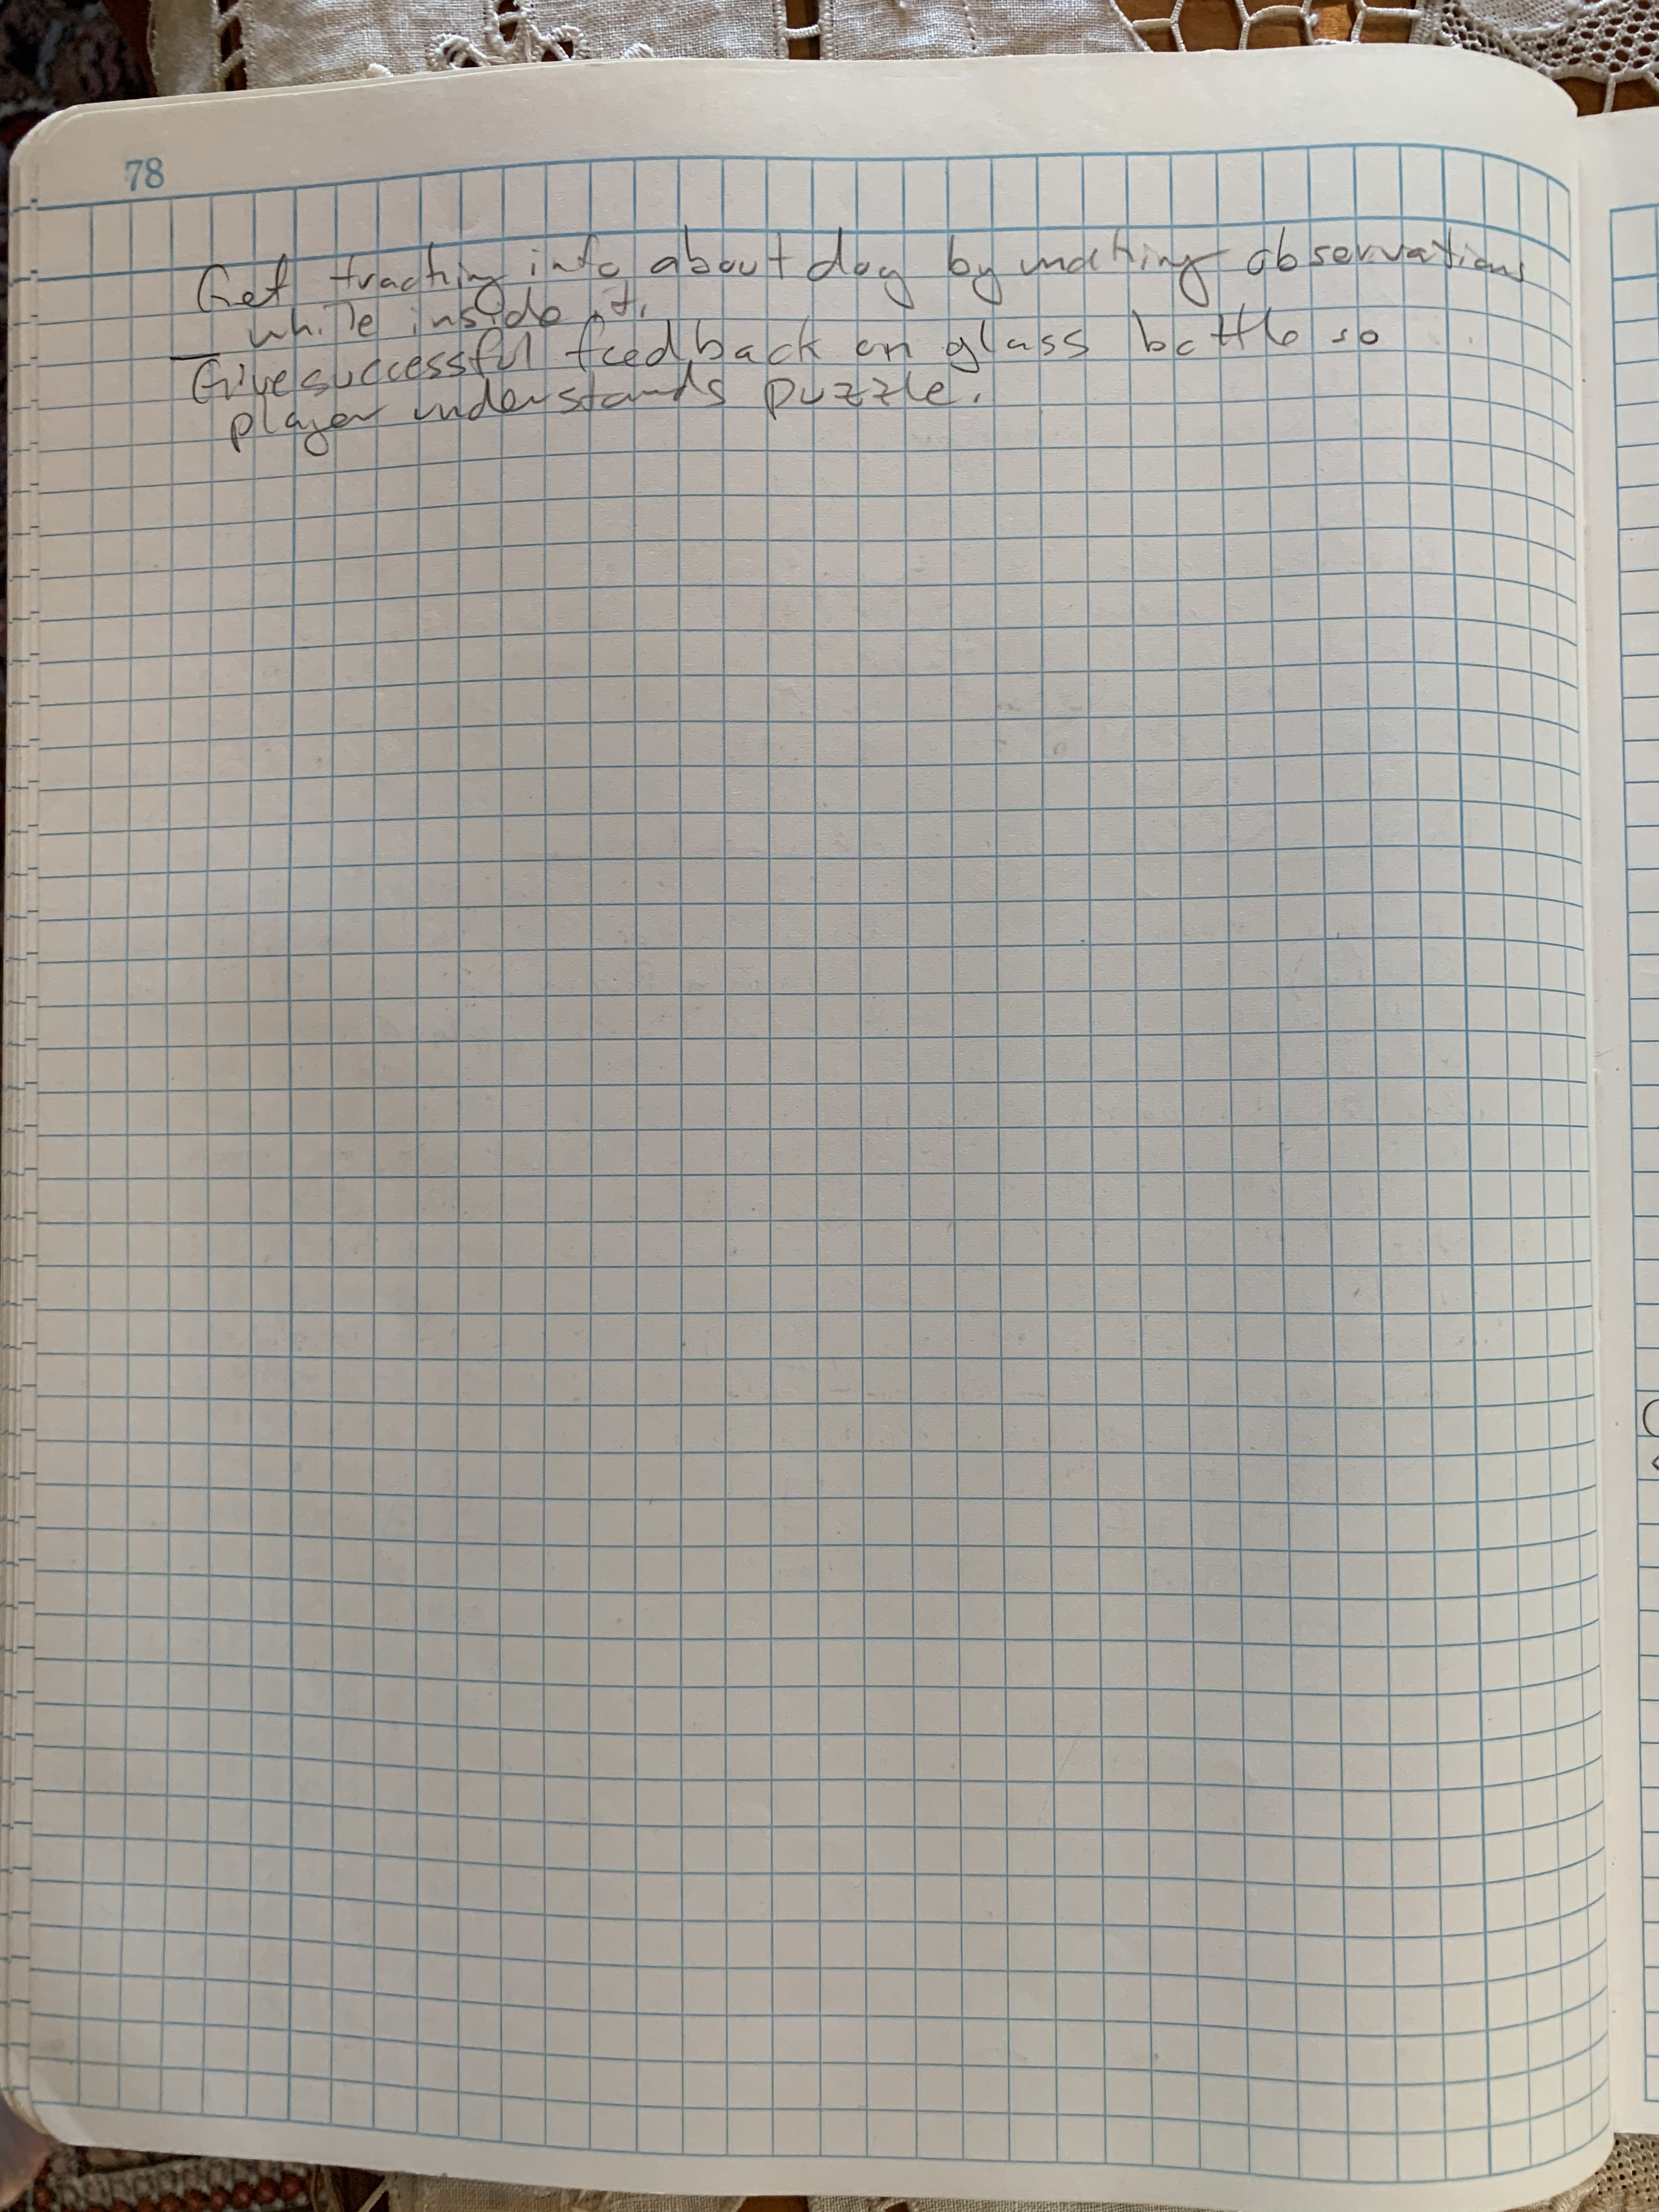 78
Get tracking info about dog by making observations
while inside it.
— Give successful feedback on glass bottle so
player understands puzzle.